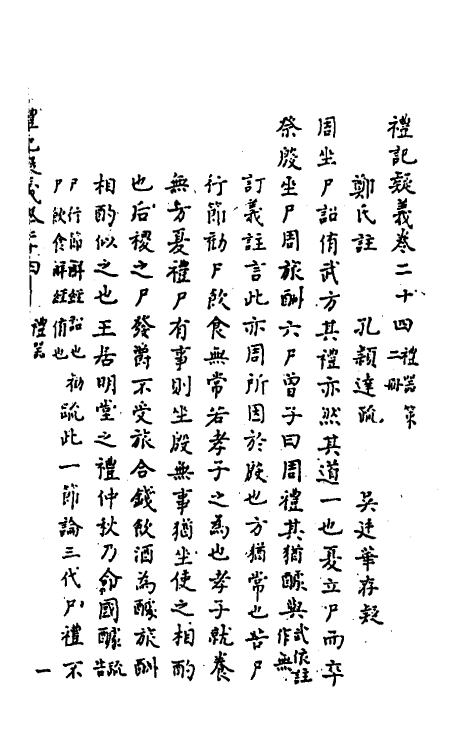 禮記疑義卷二十四 禮器第二册
鄭氏註 孔穎達疏 吳廷華存疑
周坐尸詔侑武方其禮亦然其道一也夏立尸而卒
祭殷坐尸周旅酬六尸曾子曰周禮其猶醵與武依註作無
訂義註言此亦周所因於殷也方猶常也告尸
行節勸尸飲食無常若孝子之為也孝子就養
無方夏禮尸有事則坐殷無事猶坐使之相酌
也后稷之尸發爵不受旅合錢飲酒為醵旅酬
相酌似之也王居明堂之禮仲秋乃命國醵疏告
尸行節解經詔也勸尸飲食解經侑也 疏此一節論三代尸禮不
禮記疑義卷二十四 禮器 一